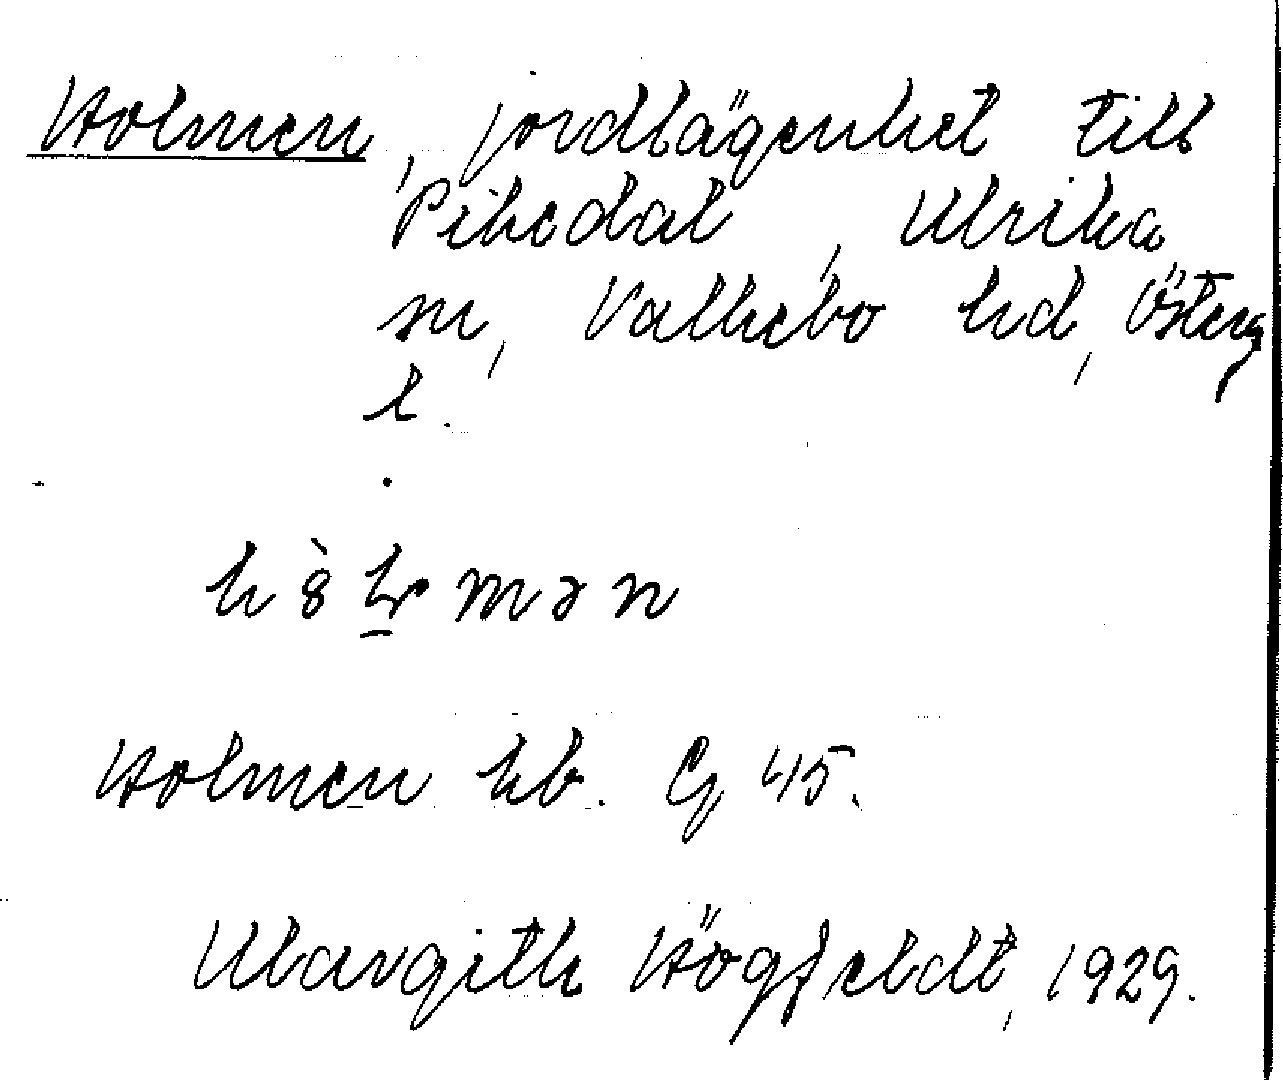 Holmen, jordlägenhet till
Pikedal, Ulrika
sn, Valkebo hd, Österg
l.
Holmen kb. G 45.
Margith Högfeldt, 1929.